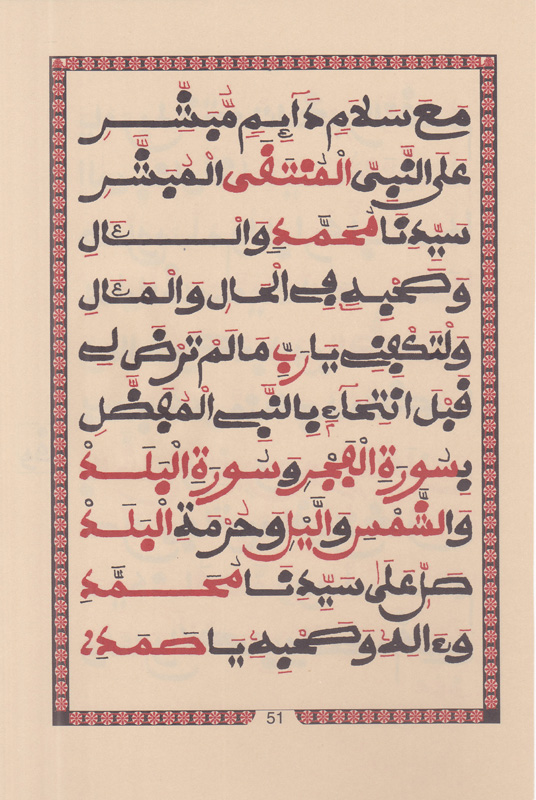 مَعَ سَلَامٍ دَآئِمٍ مُّبَشِّرِ
عَلَى النَّبِيِّ الْمُنْتَقَى الْمُبَشِّرِ
سَيِّدِنَا مُحَمَّدٍ وَالْـَٔالِ
وَصَحْبِهِ فِي الْحَالِ وَالْمَـَٔالِ
وَلْتَكْفِنِي يَا رَبِّ مَا لَمْ تَرْضَ لِي
قَبْلَ انْتِحَاءٍ بِالنَّبِي الْمُفَضَّلِ
بِسُورَةِ الْفَجْرِ وَسُورَةِ الْبَلَدْ
وَالشَّمْسِ وَالَّيْلِ وَحُرْمَةِ الْبَلَدْ
صَلِّ عَلَى سَيِّدِنَا مُحَمَّدِ
وَءَالِهِ وَصَحْبِهِ يَا صَمَدِ
51